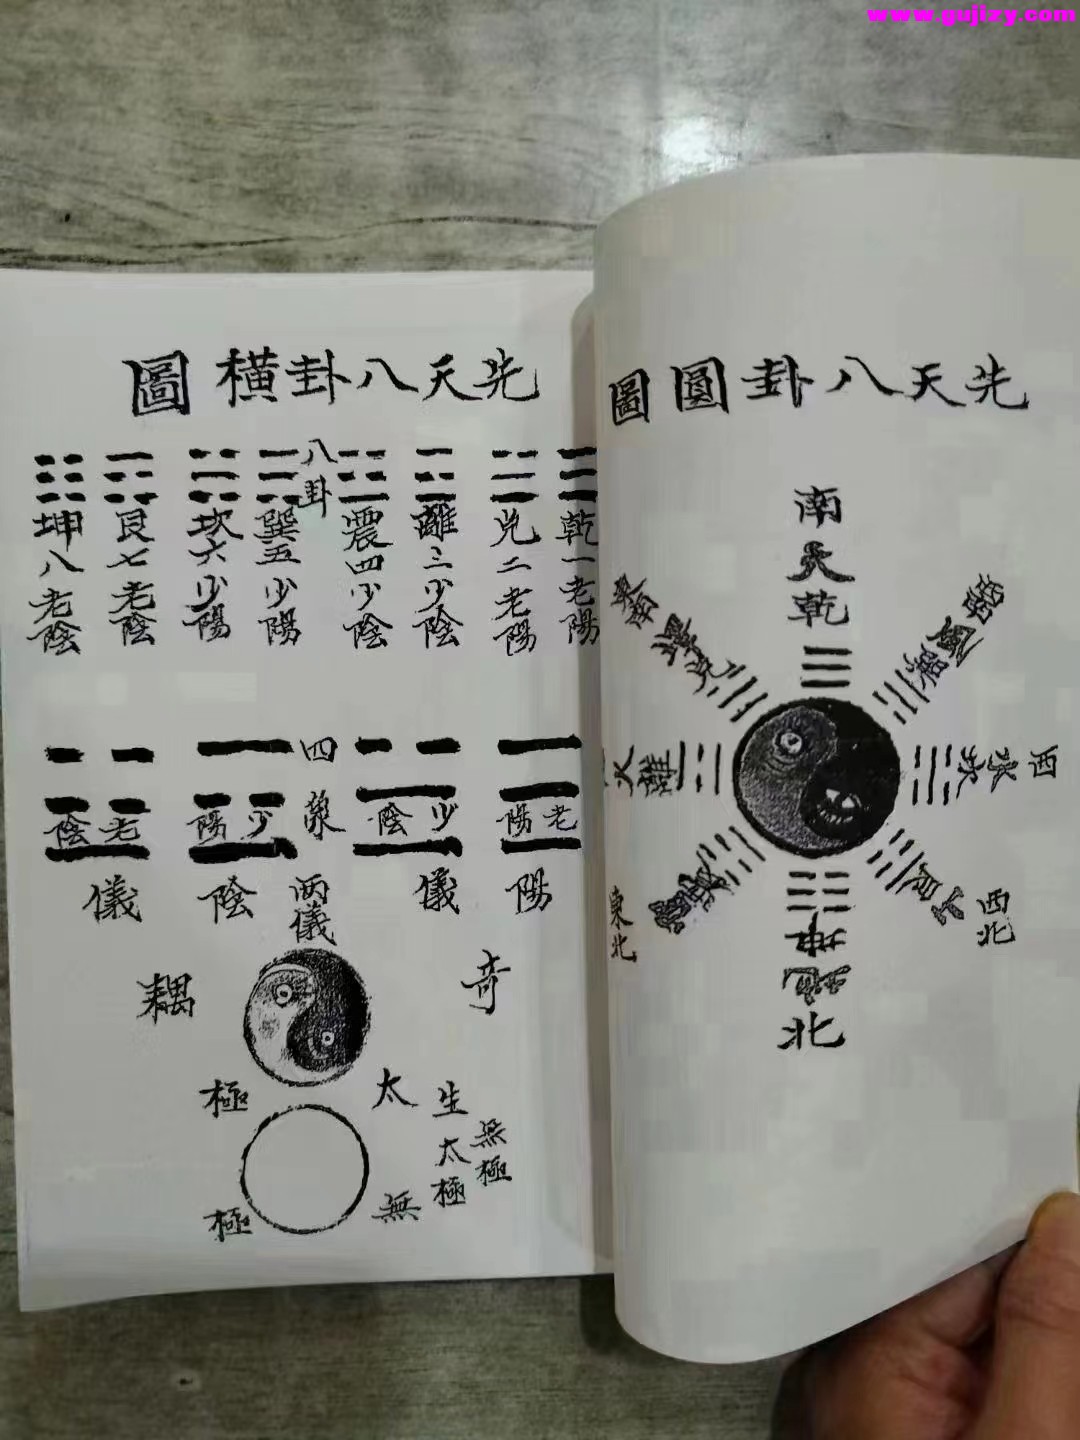 www.gujizy.com
先天八卦圓圖
南
天
乾
東南
澤
兌
風
巽
火
離
西
水
坎
東北
西北
山
艮
坤
地
北
先天八卦橫圖
八卦
乾一老陽
兌二老陽
離三少陰
震四少陰
巽五少陽
坎六少陽
艮七老陰
坤八老陰
四象
老陽
少陰
少陽
老陰
兩儀
陽儀
陰儀
奇
耦
太極
無極
無極
生
太極